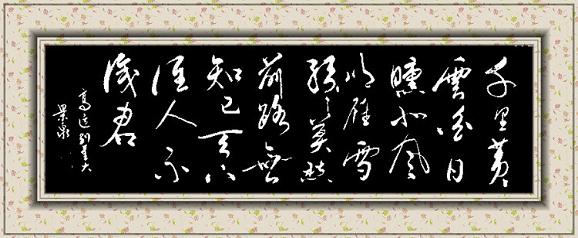 千里黄
雲白日
曛北风
吹雁雪
纷纷莫愁
前路無
知己天下
谁人不
识君
高适别董大
景泉